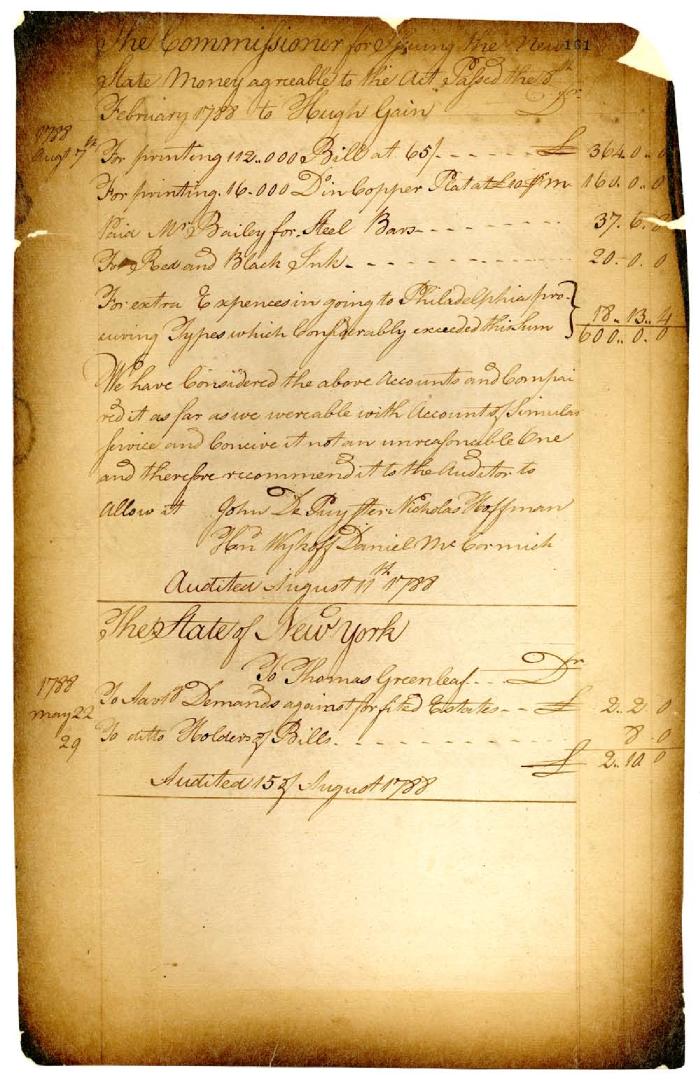 The Commissioner for Issuing the New 161
State Money agreeable to the Act Passed the 8th
February 1788 to Hugh Gain Dr
1788
Augt 7th For printing 112..000 Bill at 65/. - - - - £ 364..0..0
For printing. 16..000 Do in Copper Plat at £10 ⅌ m 160..0..0
Paid Mr Bailey for Steel Bars - - - - - - - 37..6..8
For Red and Black Ink - - - - - - - - - 20..0..0
For extra Expences in going to Philadelphia pro-
curing Types which Considerably exceeded this Sum } 18..13..4
600..0..0
We have Considered the above Accounts and Compai
red it as far as we were able with Accounts of Simular
Service and Concive it not an unreasonable One
and therefore recommend it to the Auditor to
Allow it John De Puyster Nicholas Hoffman
Hend Wykoff Daniel Mc Cormick
Audited August 11th 1788
The State of New York
To Thomas Greenleaf - - Dr
1788
May 22 To Demands against forfited Estates - - £ 2..2..0
29 To ditto Holders of Bills. - - - - - - - 8..0
£ 2..10..0
Audited 15 of August 1788